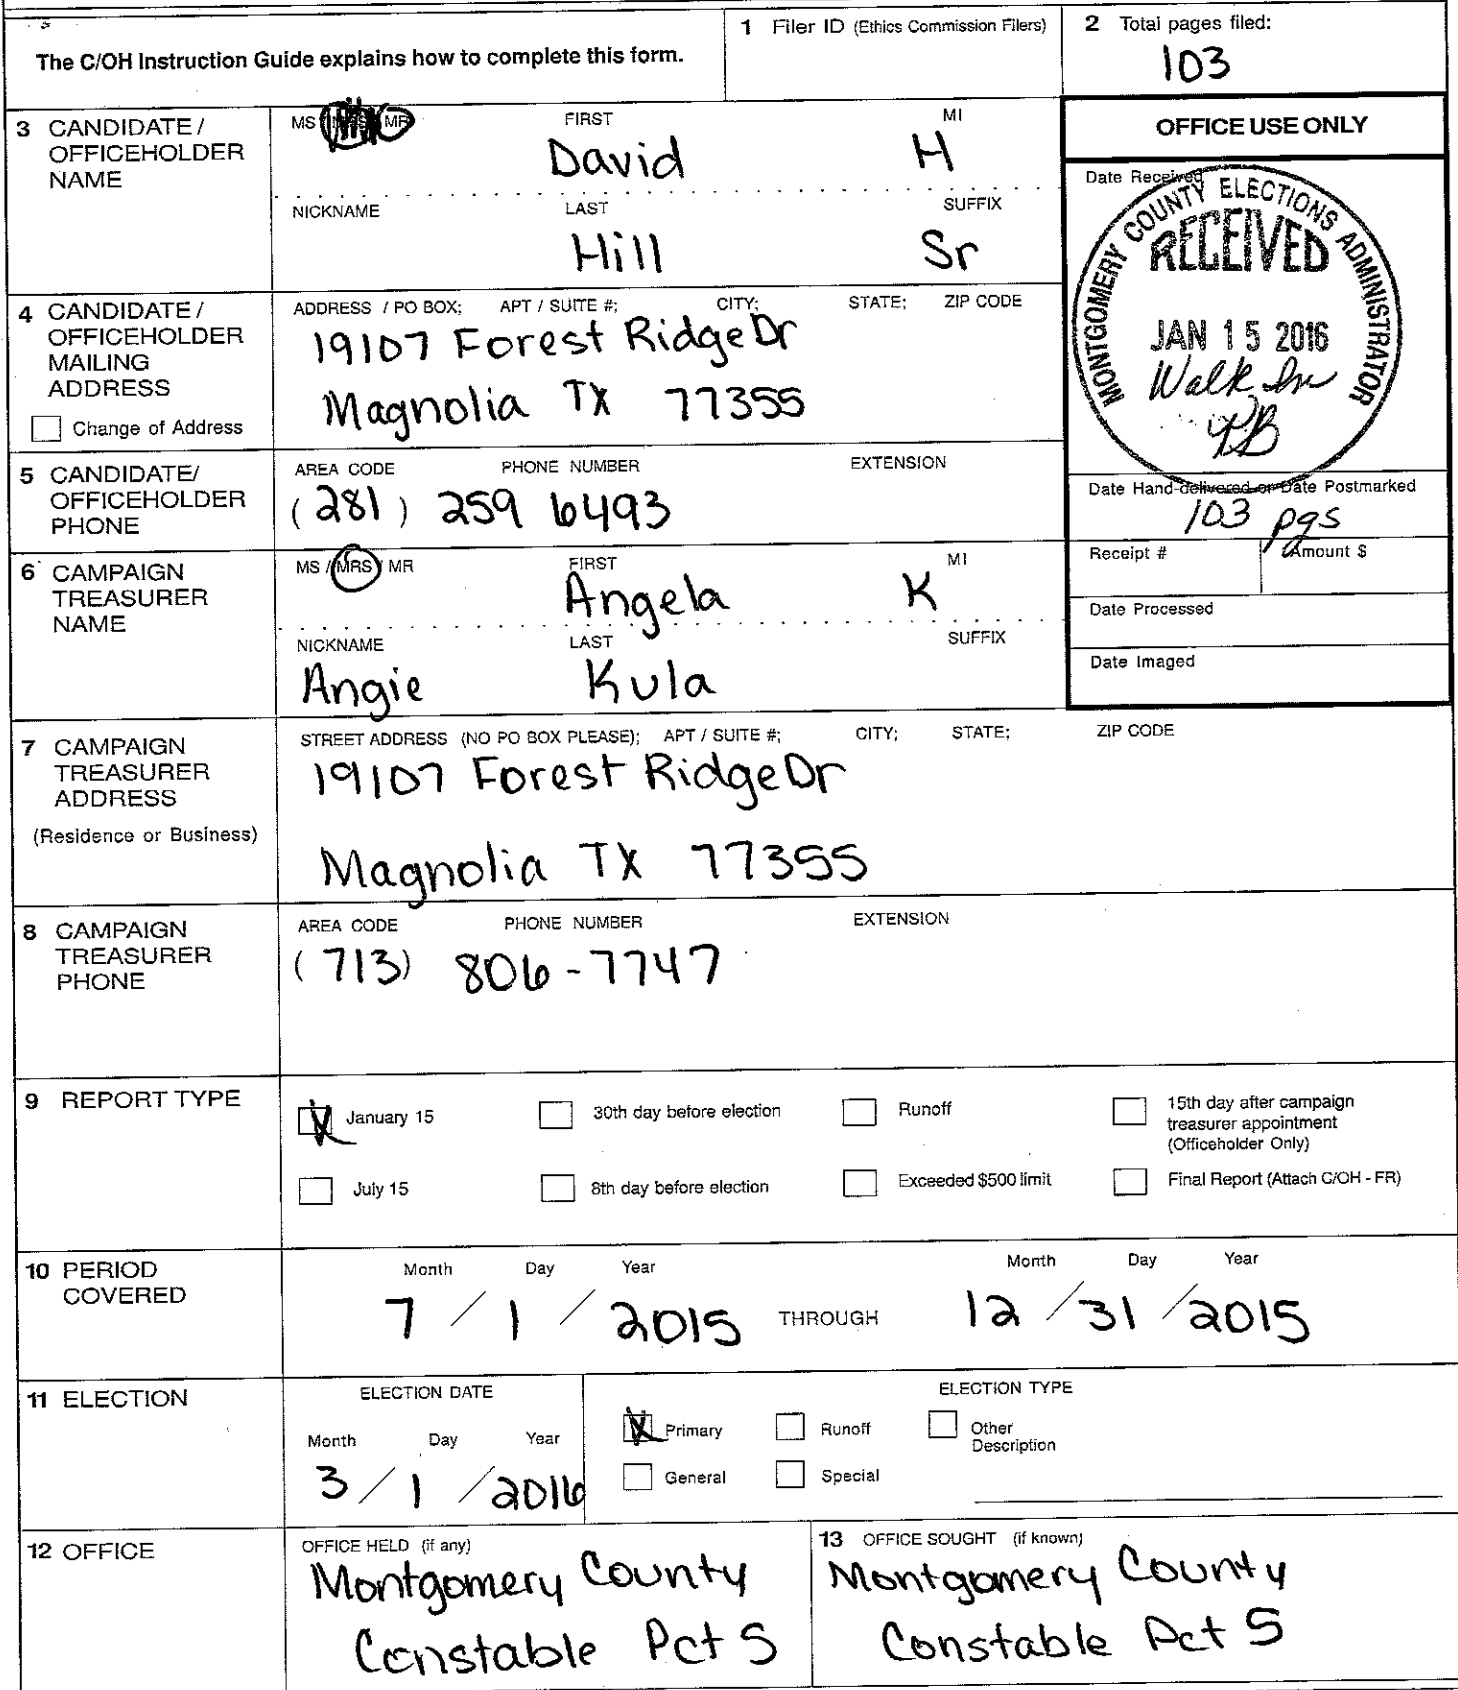 The C/OH Instruction Guide explains how to complete this form.
1 Filer ID (Ethics Commission Filers)
2 Total pages filed:
103
3 CANDIDATE / OFFICEHOLDER NAME
MS / MRS / MR FIRST MI
David H
NICKNAME LAST SUFFIX
Hill Sr
OFFICE USE ONLY
Date Received
MONTGOMERY COUNTY ELECTIONS ADMINISTRATOR
RECEIVED
JAN 15 2016
Walk In
4 CANDIDATE / OFFICEHOLDER MAILING ADDRESS
Change of Address
ADDRESS / PO BOX; APT / SUITE #; CITY; STATE; ZIP CODE
19107 Forest Ridge Dr
Magnolia TX 77355
5 CANDIDATE/ OFFICEHOLDER PHONE
AREA CODE PHONE NUMBER EXTENSION
(281) 259 6493
Date Hand-delivered or Date Postmarked
103 pgs
Receipt # Amount $
Date Processed
Date Imaged
6 CAMPAIGN TREASURER NAME
MS / MRS / MR FIRST MI
Angela K
NICKNAME LAST SUFFIX
Angie Kula
7 CAMPAIGN TREASURER ADDRESS
(Residence or Business)
STREET ADDRESS (NO PO BOX PLEASE); APT / SUITE #; CITY; STATE; ZIP CODE
19107 Forest Ridge Dr
Magnolia TX 77355
8 CAMPAIGN TREASURER PHONE
AREA CODE PHONE NUMBER EXTENSION
(713) 806-7747
9 REPORT TYPE
January 15 30th day before election Runoff 15th day after campaign treasurer appointment (Officeholder Only)
July 15 8th day before election Exceeded $500 limit Final Report (Attach C/OH - FR)
10 PERIOD COVERED
Month Day Year Month Day Year
7 / 1 / 2015 THROUGH 12 / 31 / 2015
11 ELECTION
ELECTION DATE
Month Day Year
3 / 1 / 2016
ELECTION TYPE
Primary Runoff Other Description
General Special
12 OFFICE
OFFICE HELD (if any)
Montgomery County
Constable Pct 5
13 OFFICE SOUGHT (if known)
Montgomery County
Constable Pct 5